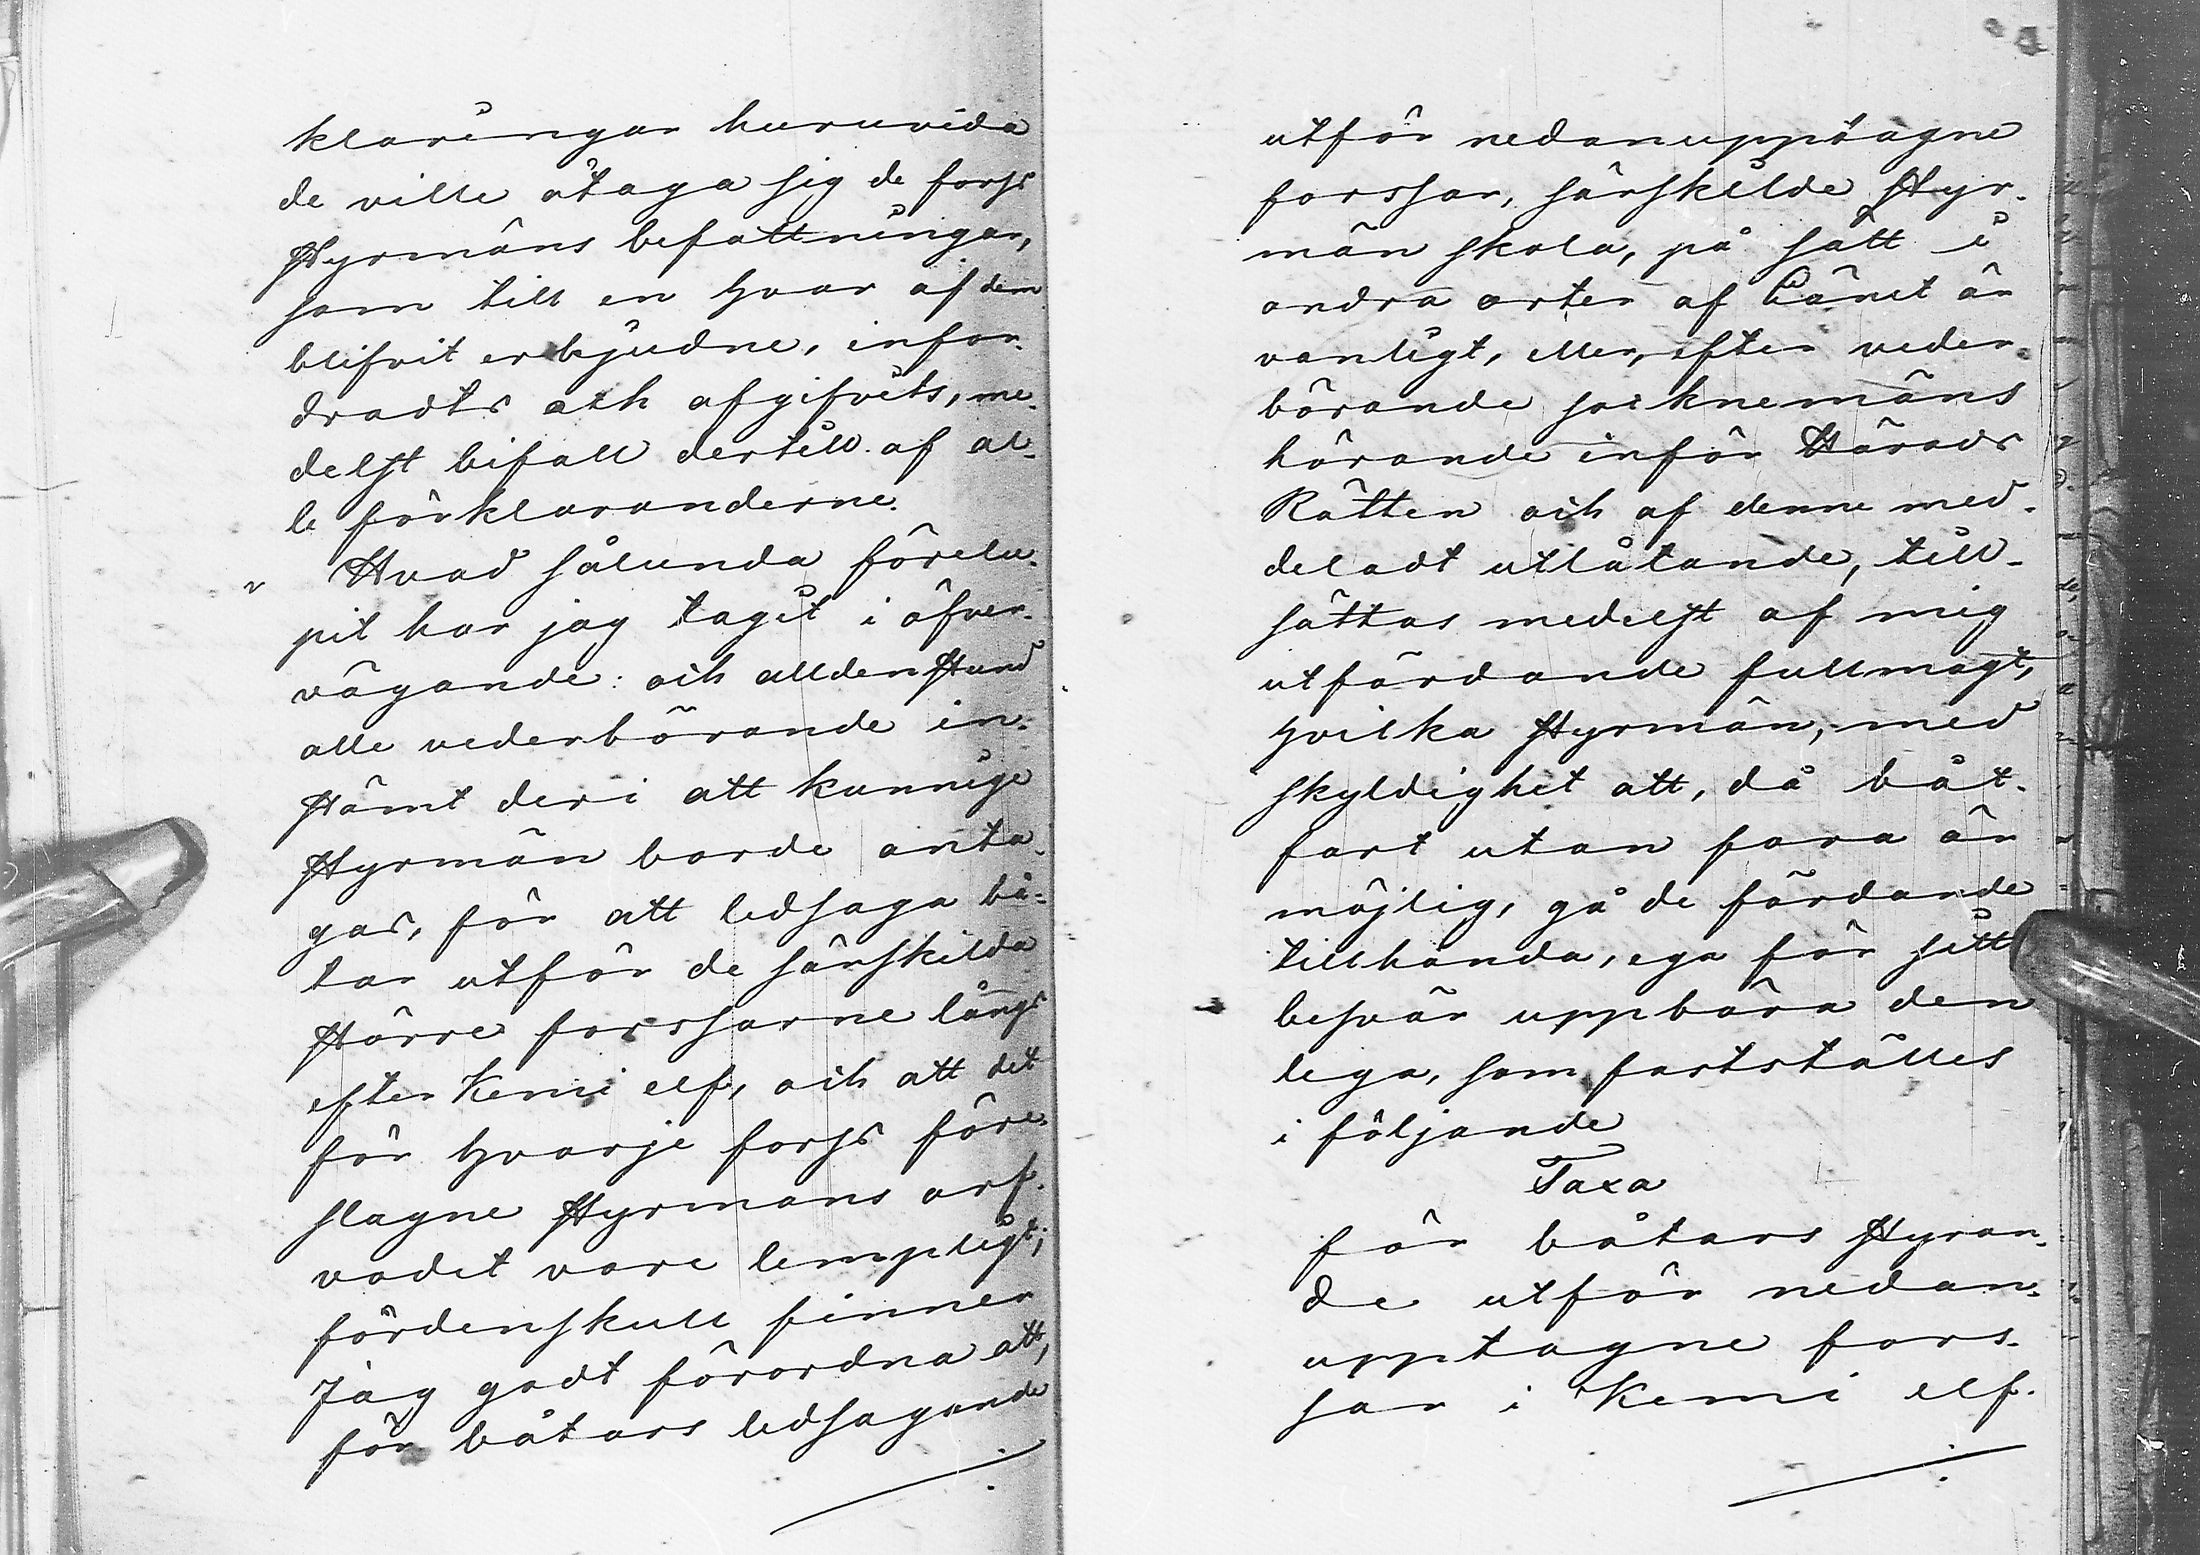 klaringar huruvida
de ville åtaga sig de forss
styrmäns befattningar,
som till en hvar af dem
blifvit erbjudne, infor-
dradts och afgifvits, me-
delst bifall dertill af al-
le förklaranderne.
Hvad sålunda förelu-
pit har jag tagit i öfver-
vägande: och alldenstund
alle vederbörande in-
stämt deri att kunnige
styrmän borde anta-
gas, för att ledsaga bå-
tar utför de särskilda
större forssarne längs
efter Kemi elf, och att det
för hvarje forss före-
slagne styrmans arf-
vodet vore lempligt;
fördenskull finner
Jag godt förordna att,
för båtars ledsagande
utför nedanupptagne
forssar, särskilde styr-
män skola, på sätt i
andra orter af Länet är
vanligt, eller, efter veder-
börande socknemäns
hörande inför Härads
Rätten och af denne med-
deladt utlåtande, till-
sättas medelst af mig
utfärdande fullmagt,
hvilka styrmän, med
skyldighet att, då båt-
fart utan fara är
möjlig, gå de färdande
tillhanda, ega för sitt
besvär uppbära den
lega, som fastställes
i följande
Taxa
för båtars styran-
de utför nedan-
upptagne fors-
sar i Kemi elf.